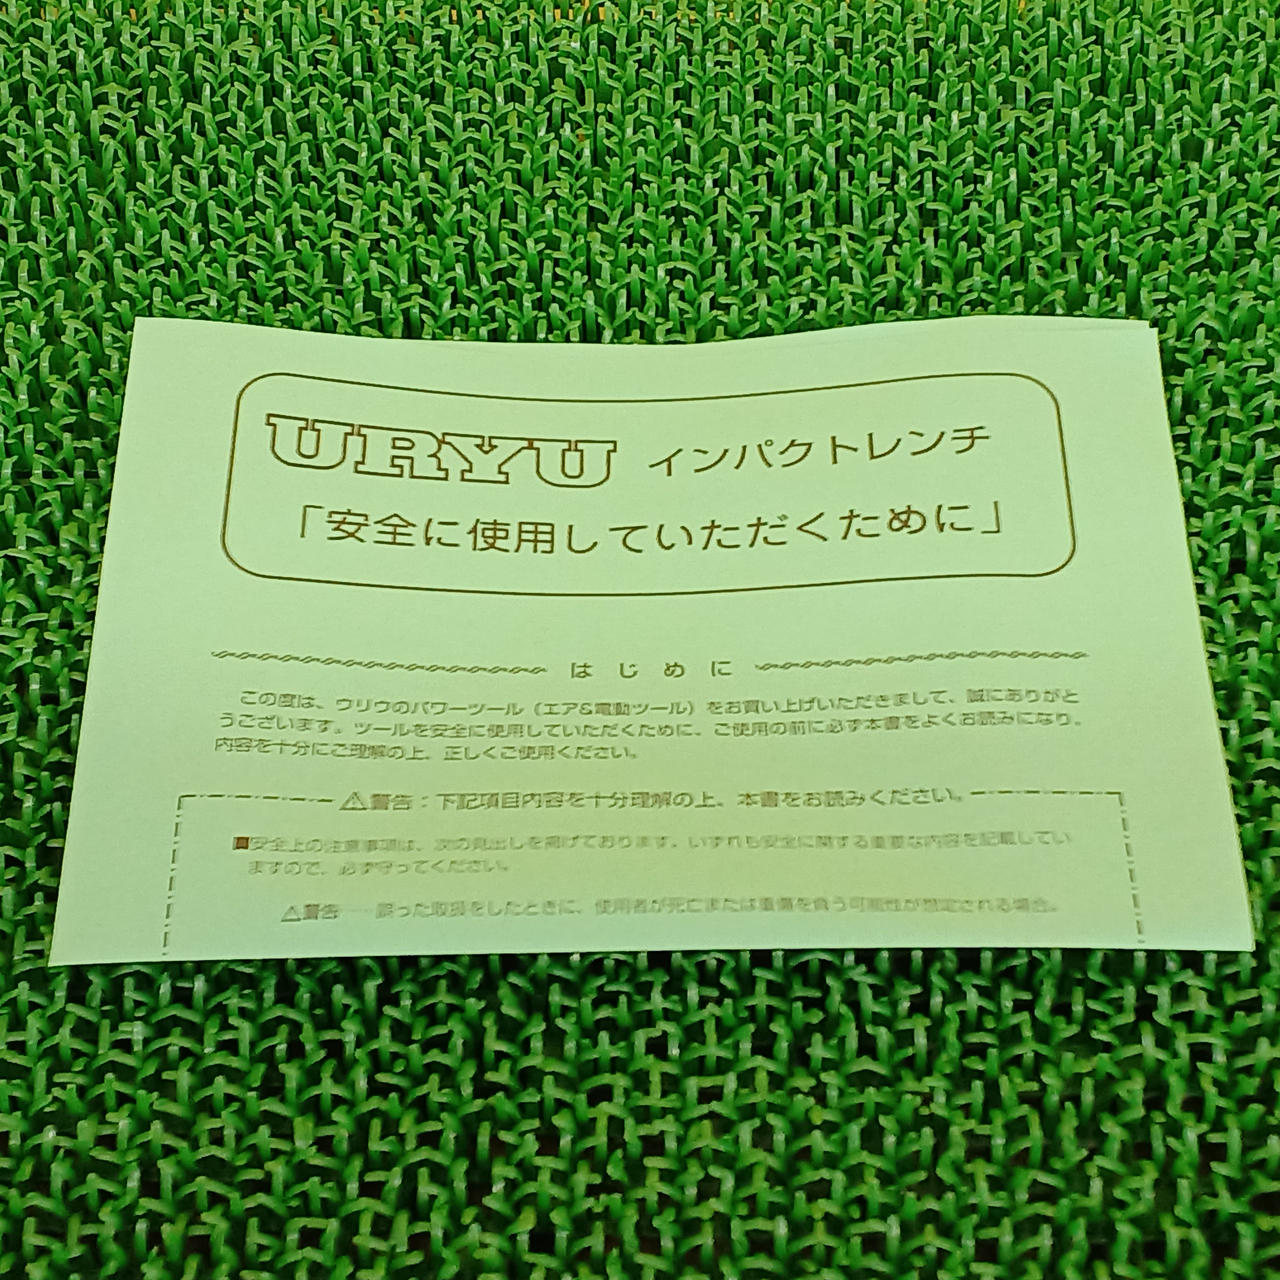 URYU インパクトレンチ
「安全に使用していただくために」
はじめに
この度は、ウリウのパワーツール（エア&電動ツール）をお買い上げいただきまして、誠にありがと
うございます。ツールを安全に使用していただくために、ご使用の前に必ず本書をよくお読みになり、
内容を十分にご理解の上、正しくご使用ください。
⚠警告：下記項目内容を十分理解の上、本書をお読みください。
■安全上の注意事項は、次の見出しを掲げております。いずれも安全に関する重要な内容を記載してい
ますので、必ず守ってください。
⚠警告……誤った取扱をしたときに、使用者が死亡または重傷を負う可能性が想定される場合。